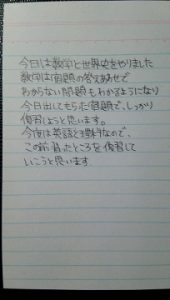 今日は数学と世界史をやりました
数学は宿題の答えあわせで
わからない問題もわかるようになり
今日出してもらった宿題で、しっかり
復習しようと思います。
今度は英語と理科なので、
この前習ったところを復習して
いこうと思います。